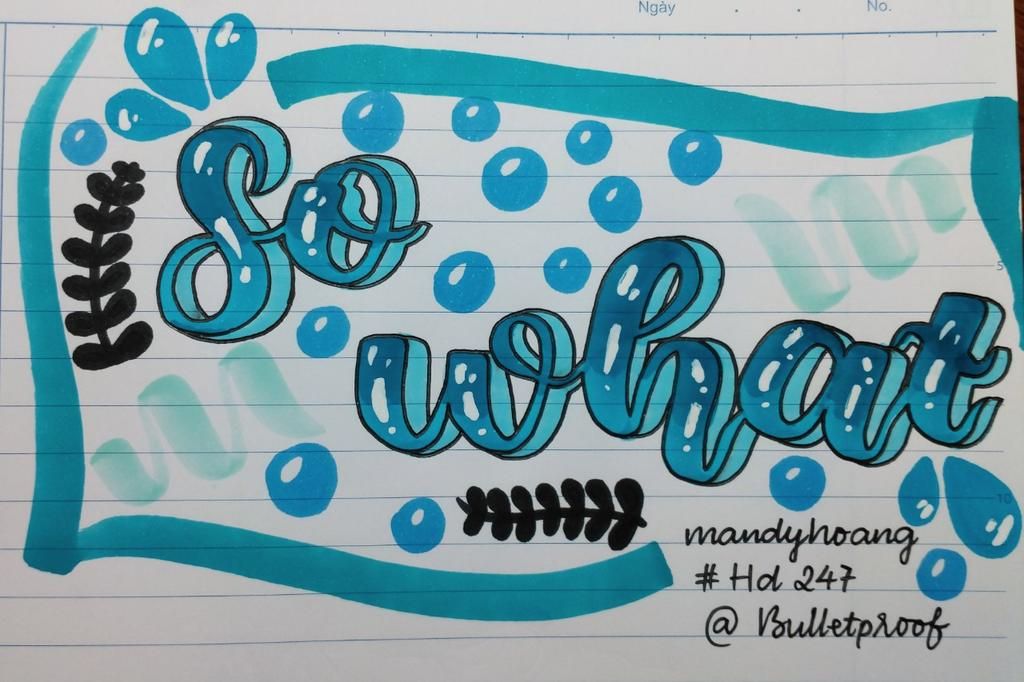 Ngày . . No.
So
what
5
10
mandyhoang
# Hd 247
@ Bulletproof